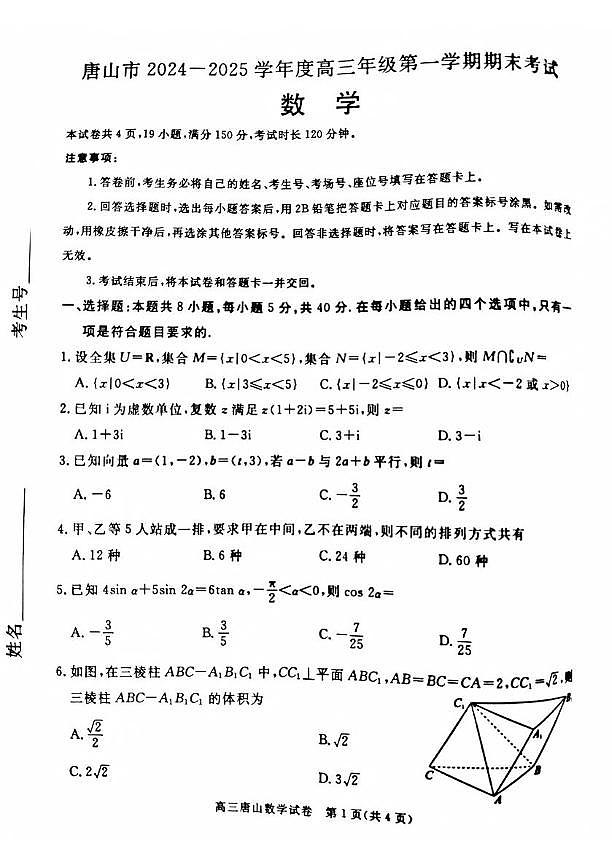 唐山市 2024－2025 学年度高三年级第一学期期末考试
数 学
本试卷共 4 页,19 小题,满分 150 分,考试时长 120 分钟。
注意事项:
1.答卷前,考生务必将自己的姓名、考生号、考场号、座位号填写在答题卡上。
2.回答选择题时,选出每小题答案后,用 2B 铅笔把答题卡上对应题目的答案标号涂黑。如需改
动,用橡皮擦干净后,再选涂其他答案标号。回答非选择题时,将答案写在答题卡上。写在本试卷上
无效。
3.考试结束后,将本试卷和答题卡一并交回。
一、选择题:本题共 8 小题,每小题 5 分,共 40 分.在每小题给出的四个选项中,只有一
项是符合题目要求的.
1.设全集 U=R,集合 M={x|0<x<5},集合 N={x|－2≤x<3},则 M∩∁UN=
A.{x|0<x<3} B.{x|3≤x<5} C.{x|－2≤x≤0} D.{x|x<－2 或 x>0}
2.已知 i 为虚数单位,复数 z 满足 z(1+2i)=5+5i,则 z=
A.1+3i B.1－3i C.3+i D.3－i
3.已知向量 a=(1,－2),b=(t,3),若 a－b 与 2a+b 平行,则 t=
A.－6 B.6 C.－3/2 D.3/2
4.甲、乙等 5 人站成一排,要求甲在中间,乙不在两端,则不同的排列方式共有
A.12 种 B.6 种 C.24 种 D.60 种
5.已知 4sin α+5sin 2α=6tan α,－π/2<α<0,则 cos 2α=
A.－3/5 B.3/5 C.－7/25 D.7/25
6.如图,在三棱柱 ABC－A₁B₁C₁ 中,CC₁⊥平面 ABC₁,AB=BC=CA=2,CC₁=√2,则
三棱柱 ABC－A₁B₁C₁ 的体积为
A.√2/2 B.√2
C.2√2 D.3√2
C₁ B₁ A₁ C B A
高三唐山数学试卷 第 1 页(共 4 页)
考生号
姓名